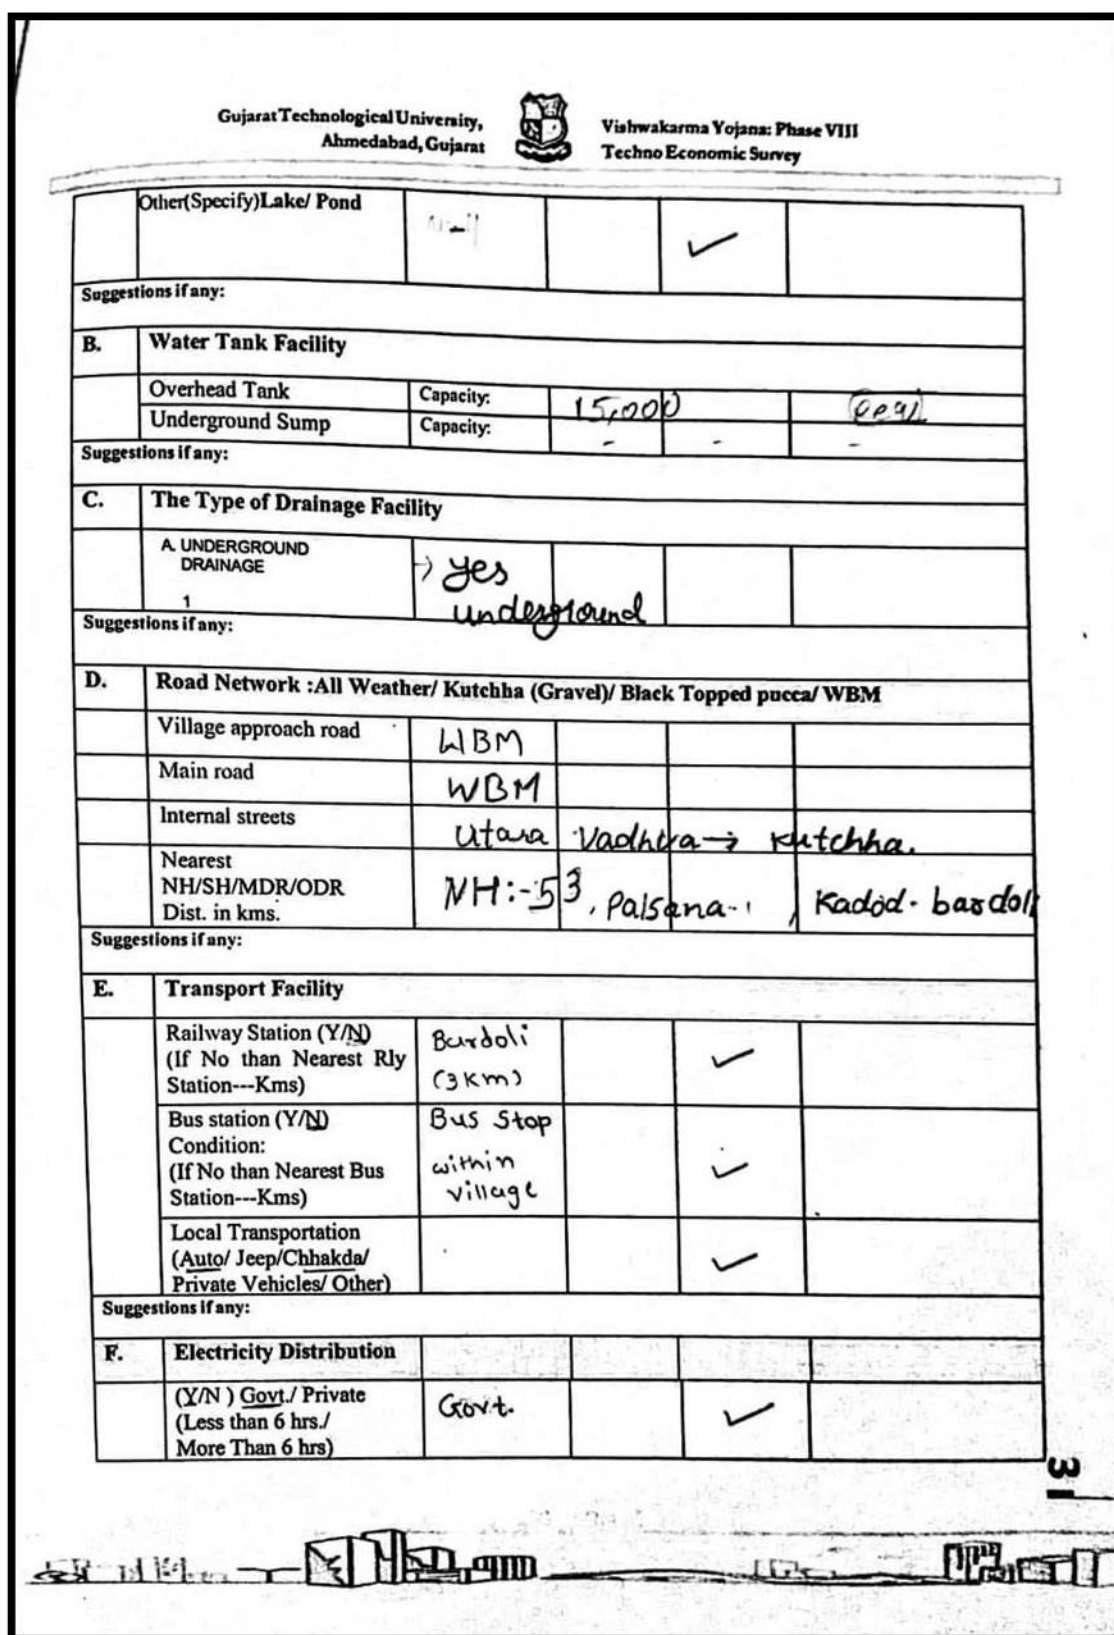 Gujarat Technological University,
Ahmedabad, Gujarat
Vishwakarma Yojana: Phase VIII
Techno Economic Survey
Other(Specify)Lake/ Pond ✓
Suggestions if any:
B. Water Tank Facility
Overhead Tank Capacity: 15,000
Underground Sump Capacity: - - -
Suggestions if any:
C. The Type of Drainage Facility
A. UNDERGROUND
DRAINAGE
1
→ yes
underground
Suggestions if any:
D. Road Network :All Weather/ Kutchha (Gravel)/ Black Topped pucca/ WBM
Village approach road WBM
Main road WBM
Internal streets Utara Vadhva → kutchha.
Nearest
NH/SH/MDR/ODR
Dist. in kms.
NH:-53, Palsana , Kadod - bardoli
Suggestions if any:
E. Transport Facility
Railway Station (Y/N)
(If No than Nearest Rly
Station---Kms)
Bardoli
(3 Km)
✓
Bus station (Y/N)
Condition:
(If No than Nearest Bus
Station---Kms)
Bus Stop
within
village
✓
Local Transportation
(Auto/ Jeep/Chhakda/
Private Vehicles/ Other)
✓
Suggestions if any:
F. Electricity Distribution
(Y/N ) Govt./ Private
(Less than 6 hrs./
More Than 6 hrs)
Govt.
✓
31